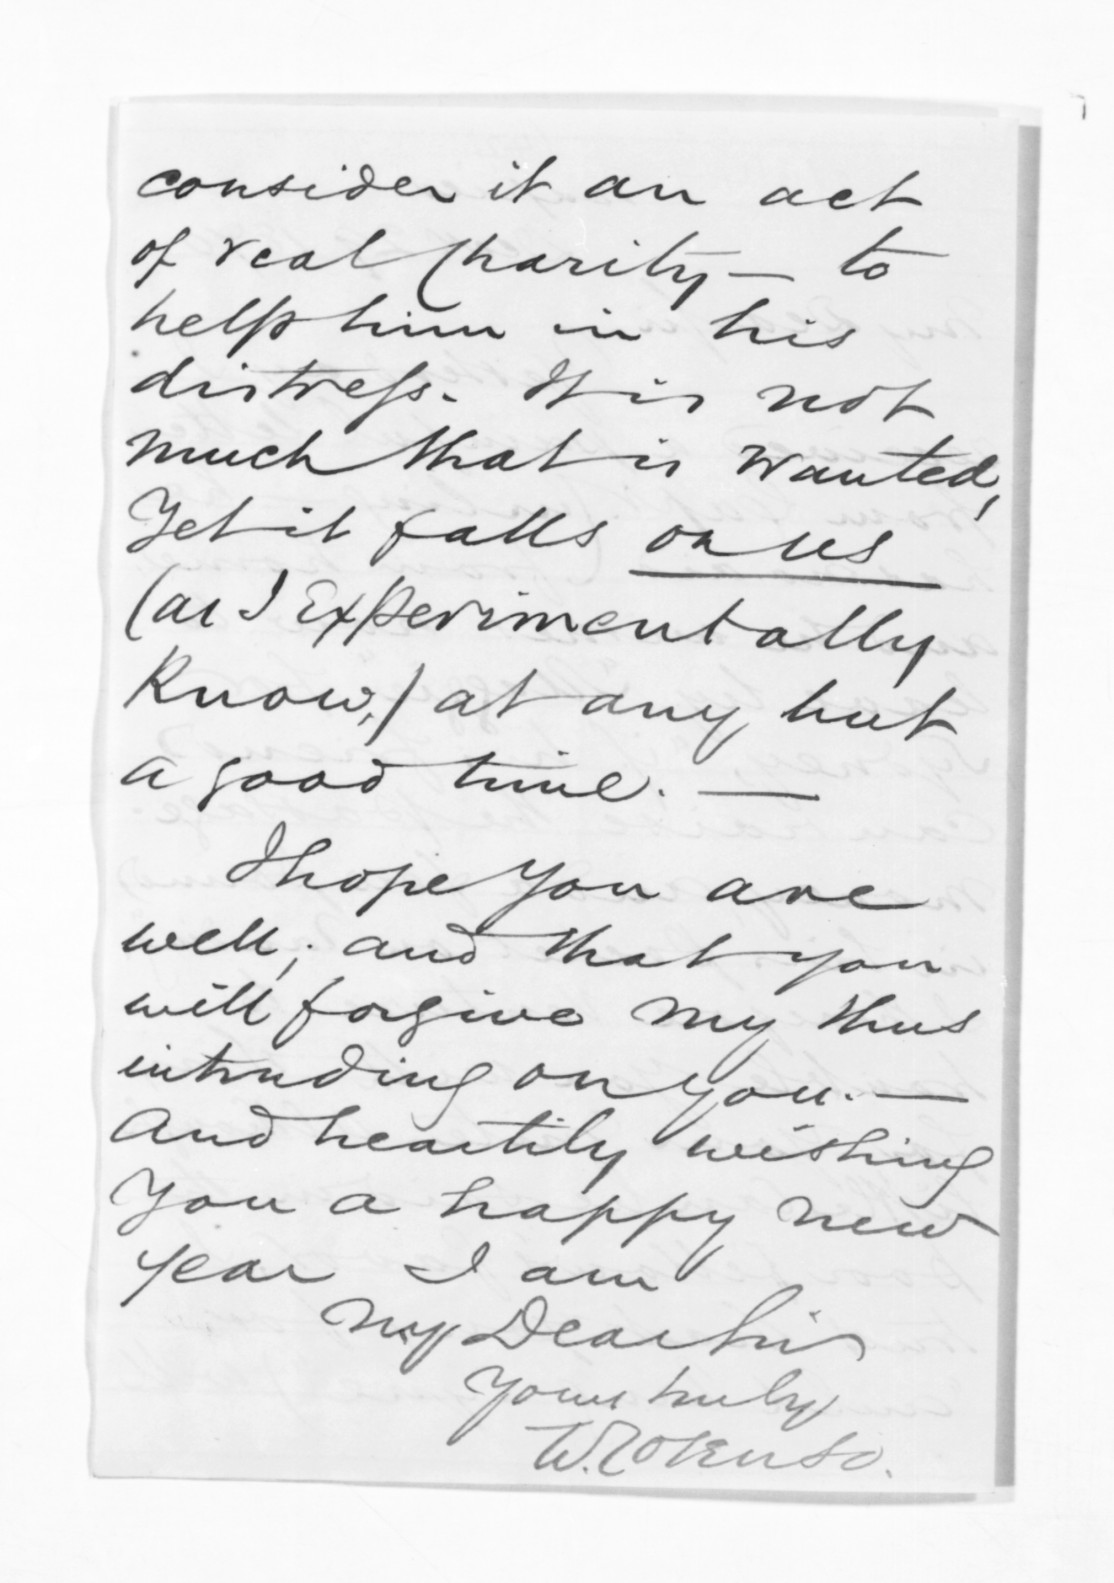 consider it an act
of real Charity – to
help him in his
distress. It is not
much that is wanted,
Yet it falls on us
(as I Experimentally
Know,) at any but
a good time. —
I hope You are
well; and that you
will forgive my thus
intruding on you. —
And heartily wishing
You a happy new
year I am
My Dear Sir
Yours truly
W. Colenso.